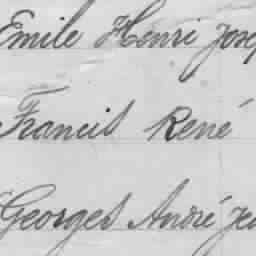 Emile Henri Josep
Francis René
Georges André Jea